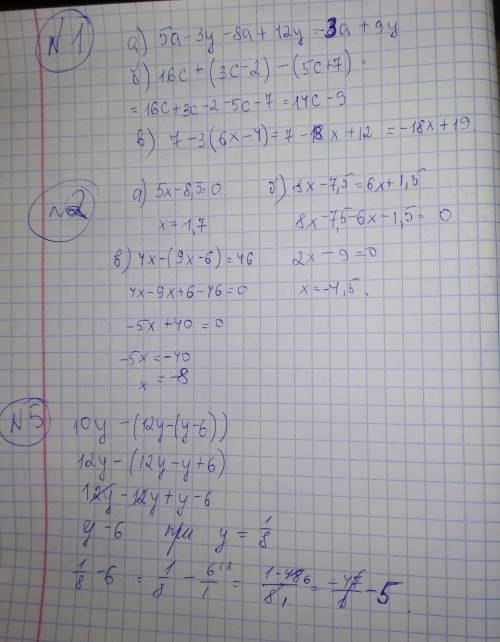 N1
а) 5a-3y-8a+12y-3a+9y
б) 16c+(3c-2)-(5c+7)=
=16c+3c-2-5c-7=14c-9
в) 7-3(6x-4)=7-18x+12=-18x+19.
N2
а) 5x-8,5=0
x=1,7
б) 8x-7,5=6x+1,5
8x-7,5-6x-1,5=0
2x-9=0
x=-4,5.
в) 4x-(9x-6)=46
4x-9x+6-46=0
-5x+40=0
-5x=-40
x=-8
N5
10y-(12y-(y-6))
12y-(12y-y+6)
12y-12y+y-6
y-6 при y=1/8
1/8-6=1/8-6/1=